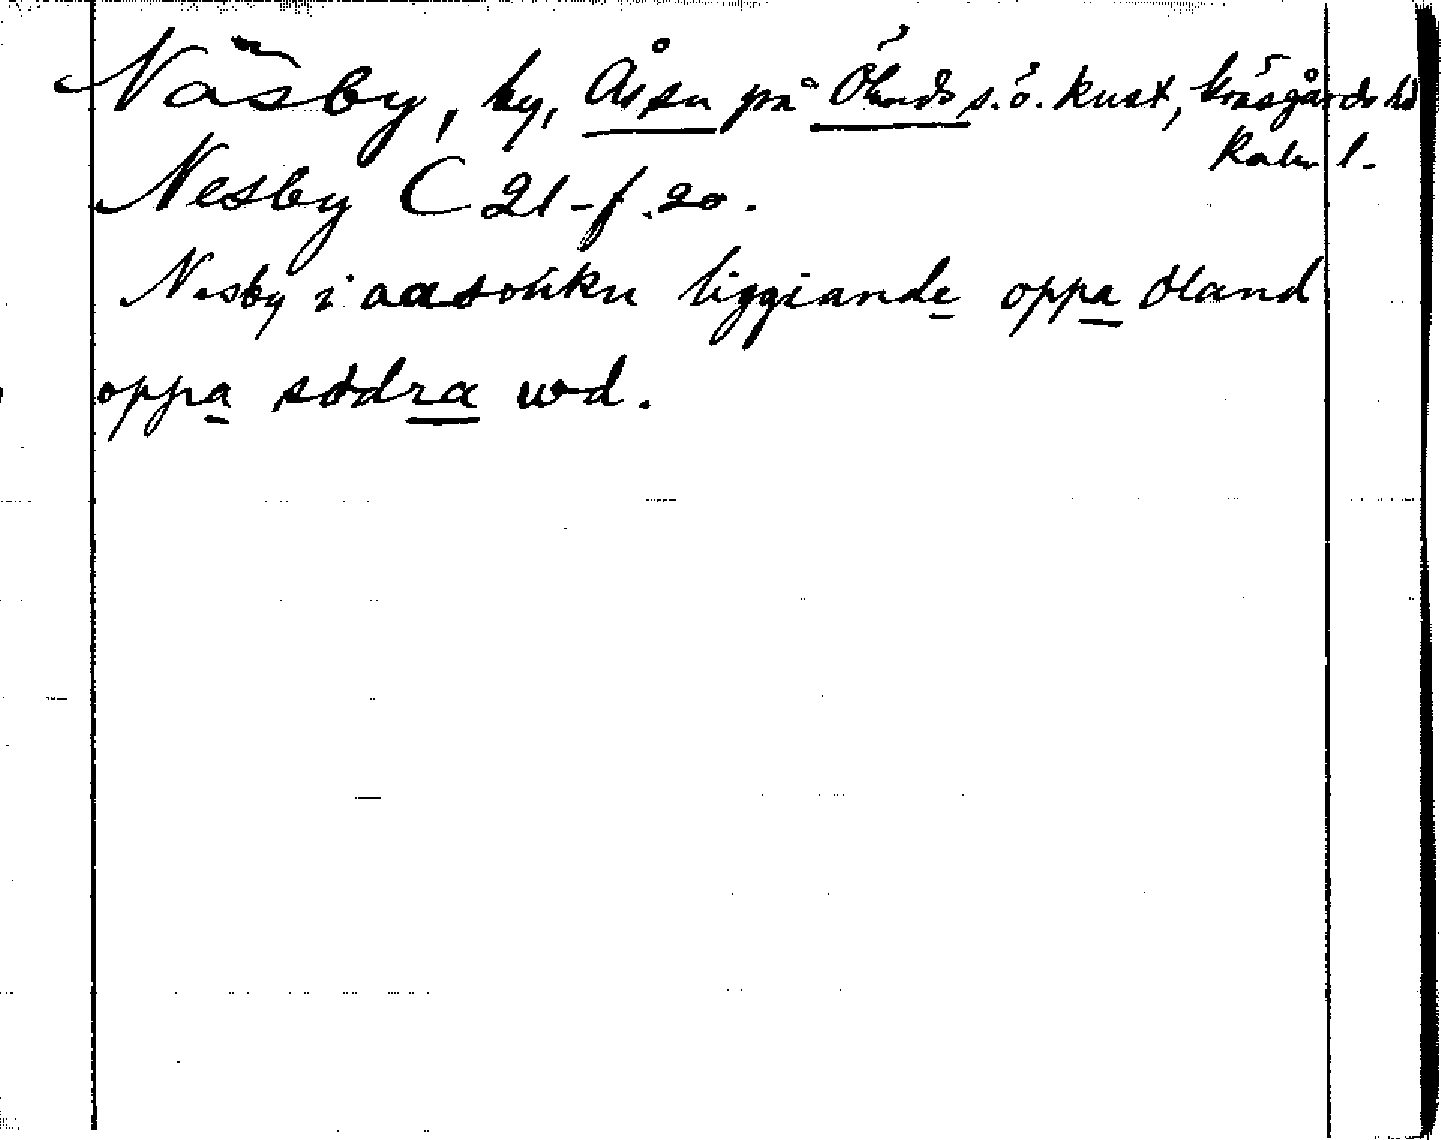 Näsby, by, Ås sn på Ölands s. ö. kust, Gräsgårds hd
Kalm l.
Nesby C 21 - f. 20.
Nesby i aasoukn liggiande oppa öland
oppa södra udd.